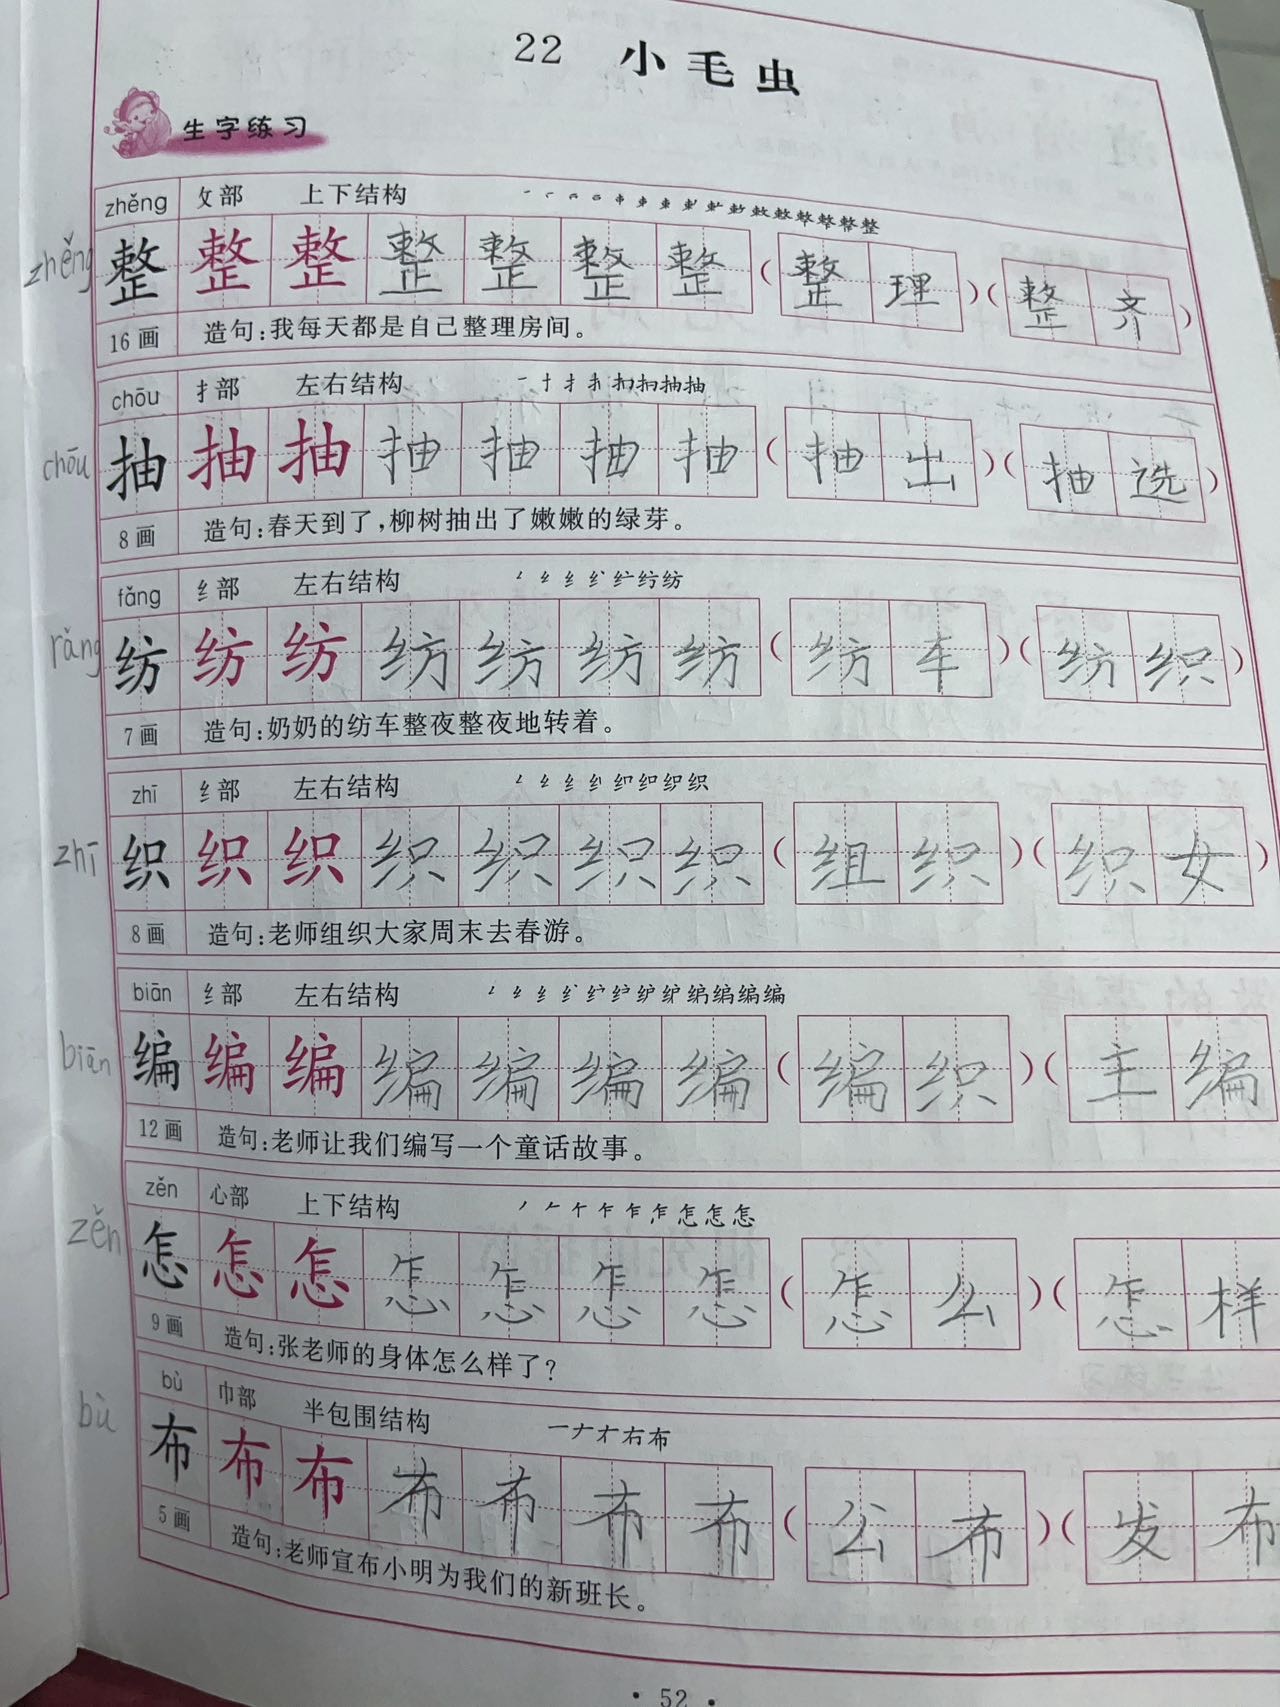 22 小毛虫
生字练习
zhěng 攵部 上下结构
zhěng 整 整 整 整 整 整 整 (整理)(整齐)
16画 造句:我每天都是自己整理房间。
chōu 扌部 左右结构
chōu 抽 抽 抽 抽 抽 抽 抽 (抽出)(抽选)
8画 造句:春天到了,柳树抽出了嫩嫩的绿芽。
fǎng 纟部 左右结构
fǎng 纺 纺 纺 纺 纺 纺 纺 (纺车)(纺织)
7画 造句:奶奶的纺车整夜整夜地转着。
zhī 纟部 左右结构
zhī 织 织 织 织 织 织 织 (组织)(织女)
8画 造句:老师组织大家周末去春游。
biān 纟部 左右结构
biān 编 编 编 编 编 编 编 (编织)(主编
12画 造句:老师让我们编写一个童话故事。
zěn 心部 上下结构
zěn 怎 怎 怎 怎 怎 怎 怎 (怎么)(怎样
9画 造句:张老师的身体怎么样了?
bù 巾部 半包围结构
bù 布 布 布 布 布 布 布 (公布)(发布
5画 造句:老师宣布小明为我们的新班长。
·52·